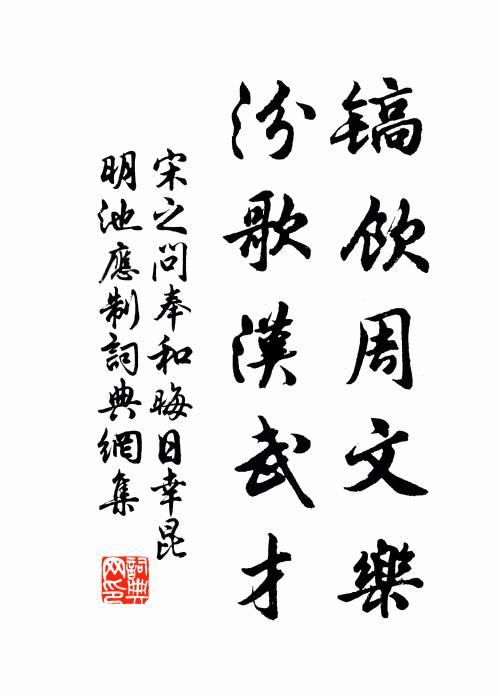 镐饮周文樂
汾歌漢武才
宋之問奉和晦日幸昆
明池應制詞典網集
詞典
网印